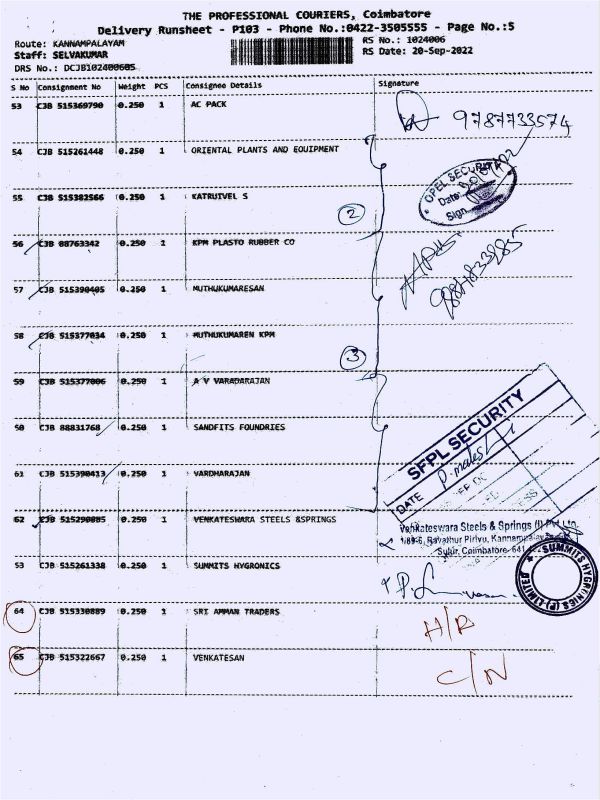 THE PROFESSIONAL COURIERS, Coimbatore
Delivery Runsheet - P103 - Phone No.:0422-3505555 - Page No.:5
Route: KANNAMPALAYAM
RS No.: 1024006
Staff: SELVAKUMAR
RS Date: 20-Sep-2022
DRS No.: DCJB102400605
S No Consignment No Weight PCS Consignee Details Signature
53 CJB 515369790 0.250 1 AC PACK 9787733574
54 CJB 515261448 0.250 1 ORIENTAL PLANTS AND EQUIPMENT
OPEL SECURITY
Date
Sign
55 CJB 515382566 0.250 1 KATRUIVEL S
2
56 CJB 88763342 0.250 1 KPM PLASTO RUBBER CO
57 CJB 515390405 0.250 1 MUTHUKUMARESAN
58 CJB 515377034 0.250 1 MUTHUKUMAREN KPM
3
59 CJB 515377006 0.250 1 A V VARADARAJAN
50 CJB 88831768 0.250 1 SANDFITS FOUNDRIES
SFPL SECURITY
DATE
61 CJB 515390413 0.250 1 VARDHARAJAN
62 CJB 515290885 0.250 1 VENKATESWARA STEELS &SPRINGS
Venkateswara Steels & Springs (I) Pvt Ltd.
1/89-6, Ravathur Pirivu, Kannampalayam
Sulur, Coimbatore- 641
53 CJB 515261338 0.250 1 SUMMITS HYGRONICS
SUMMITS HYGRONICS (P) LIMITED
64 CJB 515330889 0.250 1 SRI AMMAN TRADERS
H/R
65 CJB 515322667 0.250 1 VENKATESAN
C/N